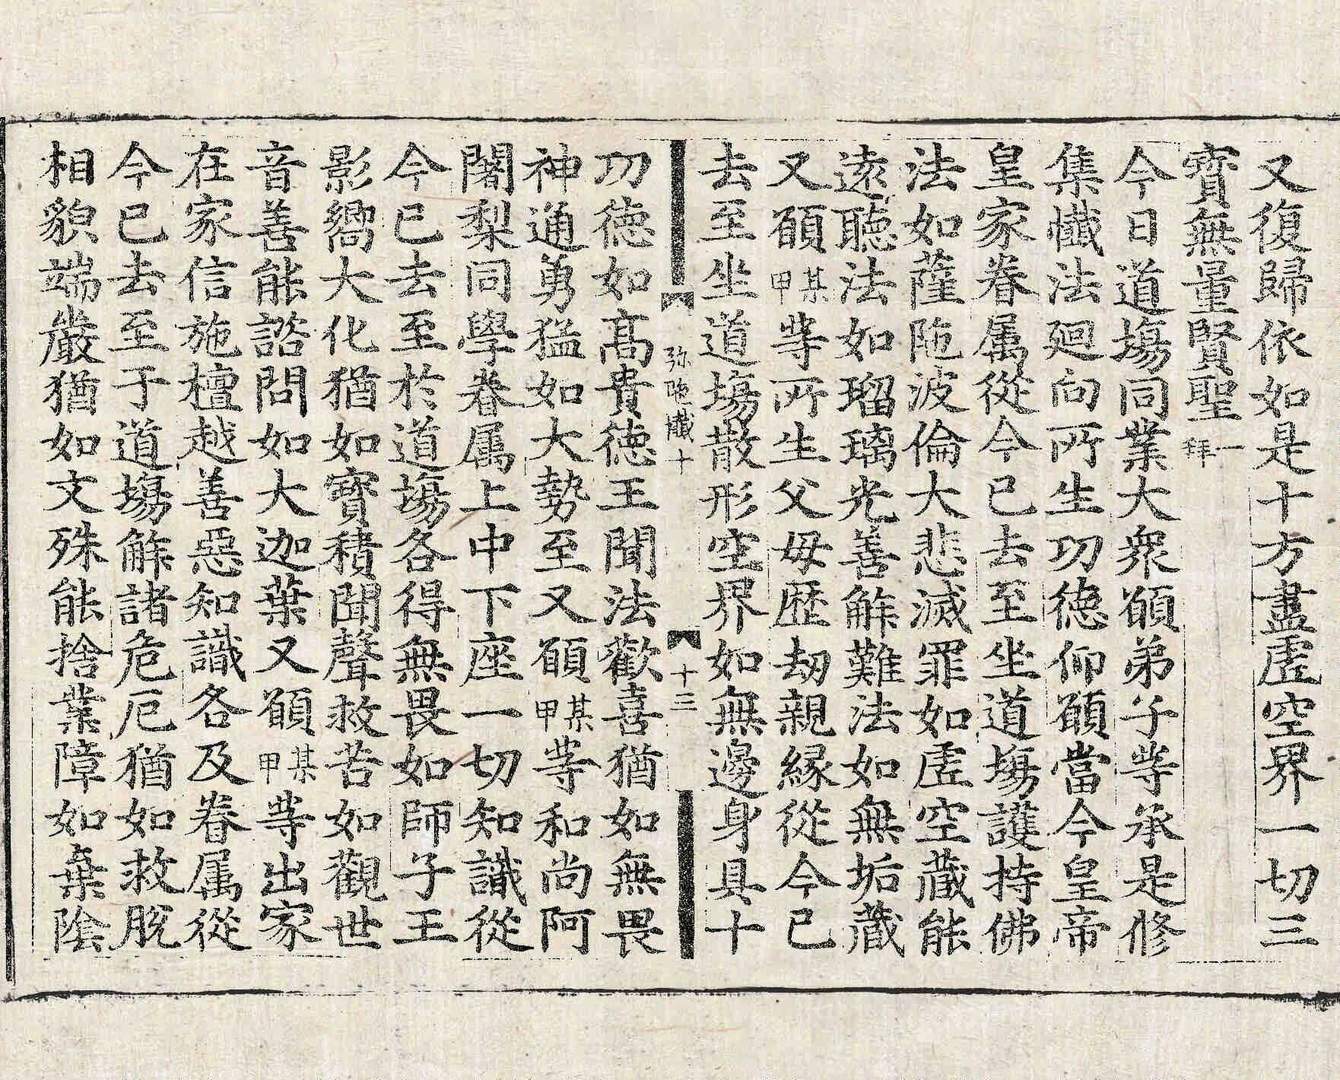 又復歸依如是十方盡虛空界一切三
寳無量賢聖一拜
今日道塲同業大衆願弟子等承是修
集懴法廻向所生功德仰願當今皇帝
皇家眷属從今已去至坐道塲護持佛
法如薩陁波倫大悲滅罪如虛空藏能
遠聽法如瑠璃光善解難法如無垢藏
又願某甲等所生父母歷劫親緣從今已
去至坐道塲散形空界如無邊身具十
弥陁懴十
十三
功德如高貴德王聞法歡喜猶如無畏
神通勇猛如大勢至又願某甲等和尚阿
闍梨同學眷属上中下座一切知識從
今已去至於道塲各得無畏如師子王
影嚮大化猶如寶積聞聲救苦如觀世
音善能諮問如大迦葉又願某甲等出家
在家信施檀越善惡知識各及眷属從
今已去至于道塲解諸危厄猶如救脫
相貌端嚴猶如文殊能捨業障如棄陰